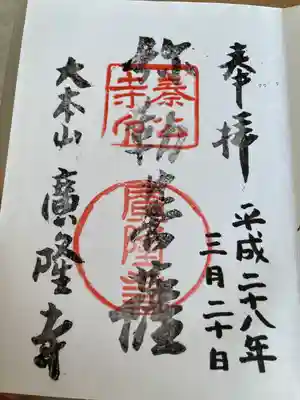 奉拝
平成二十八年
三月二十日
弥勒菩薩
廣隆寺
大本山 廣隆寺